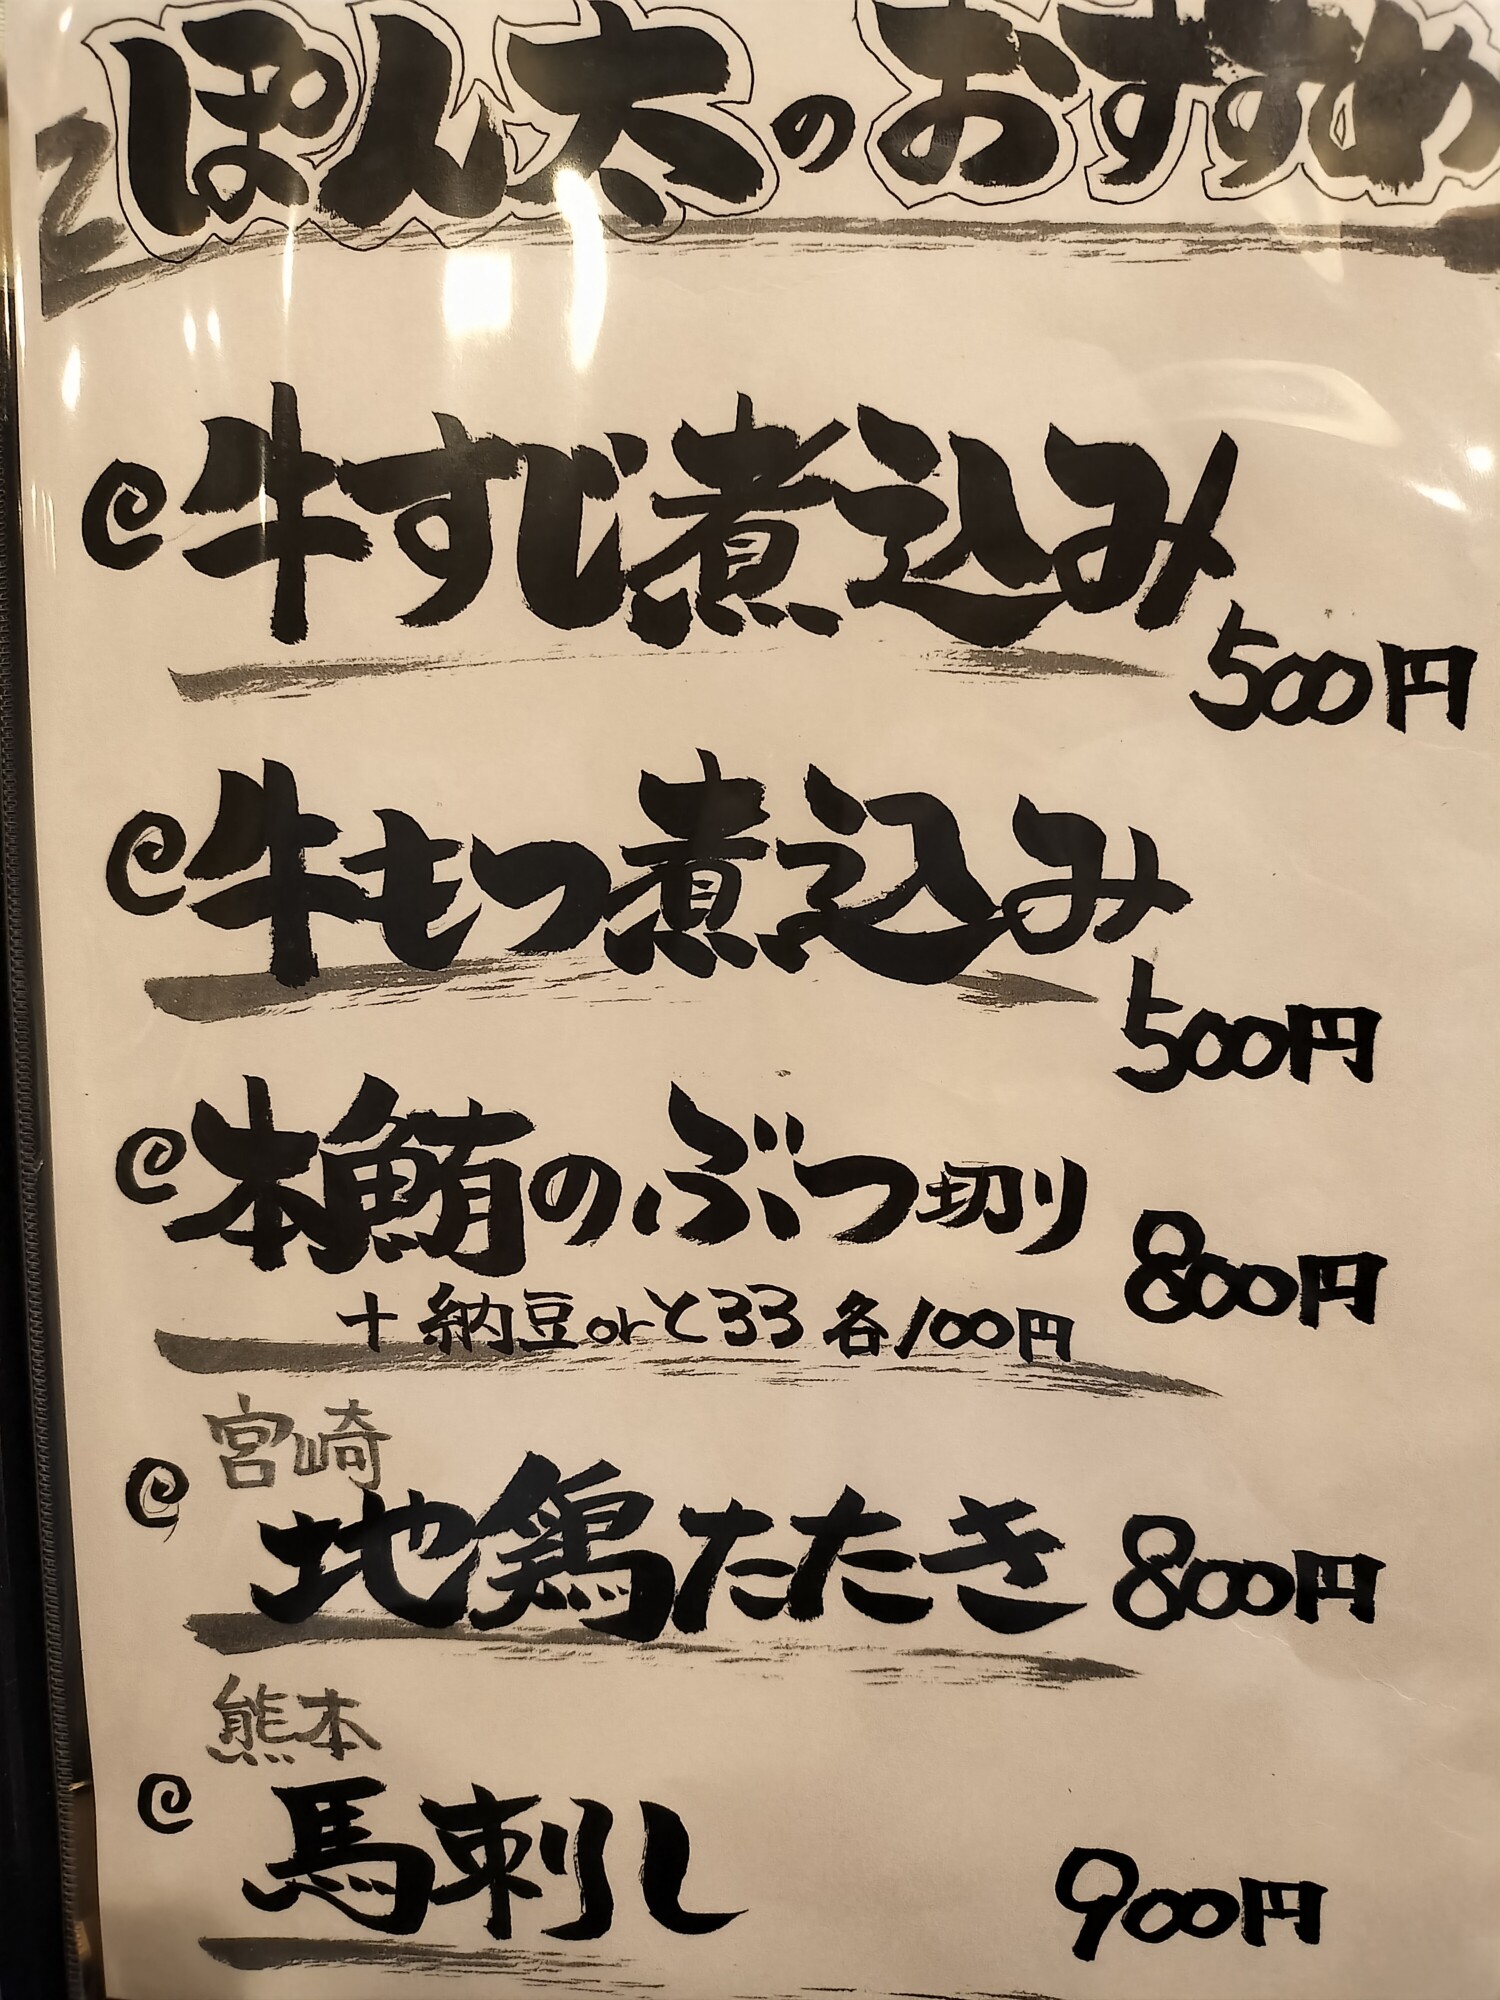 ぽん太のおすすめ
牛すじ煮込み
500円
牛もつ煮込み
500円
本鮪のぶつ切り
800円
+納豆orとろろ 各100円
宮崎
地鶏たたき 800円
熊本
馬刺し
900円